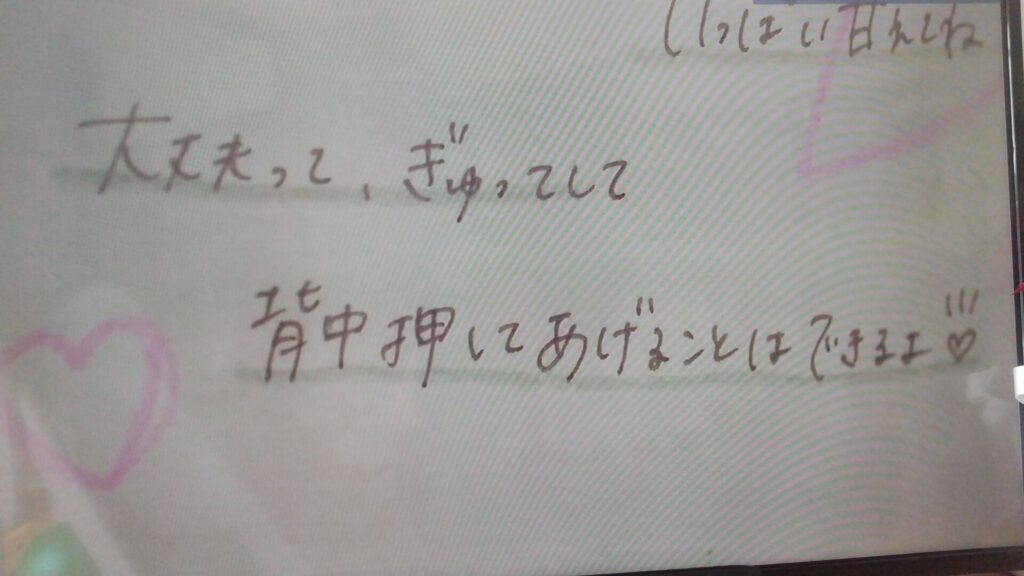 いっぱい甘えてね
大丈夫って、ぎゅってして
背中押してあげることはできるよ♡